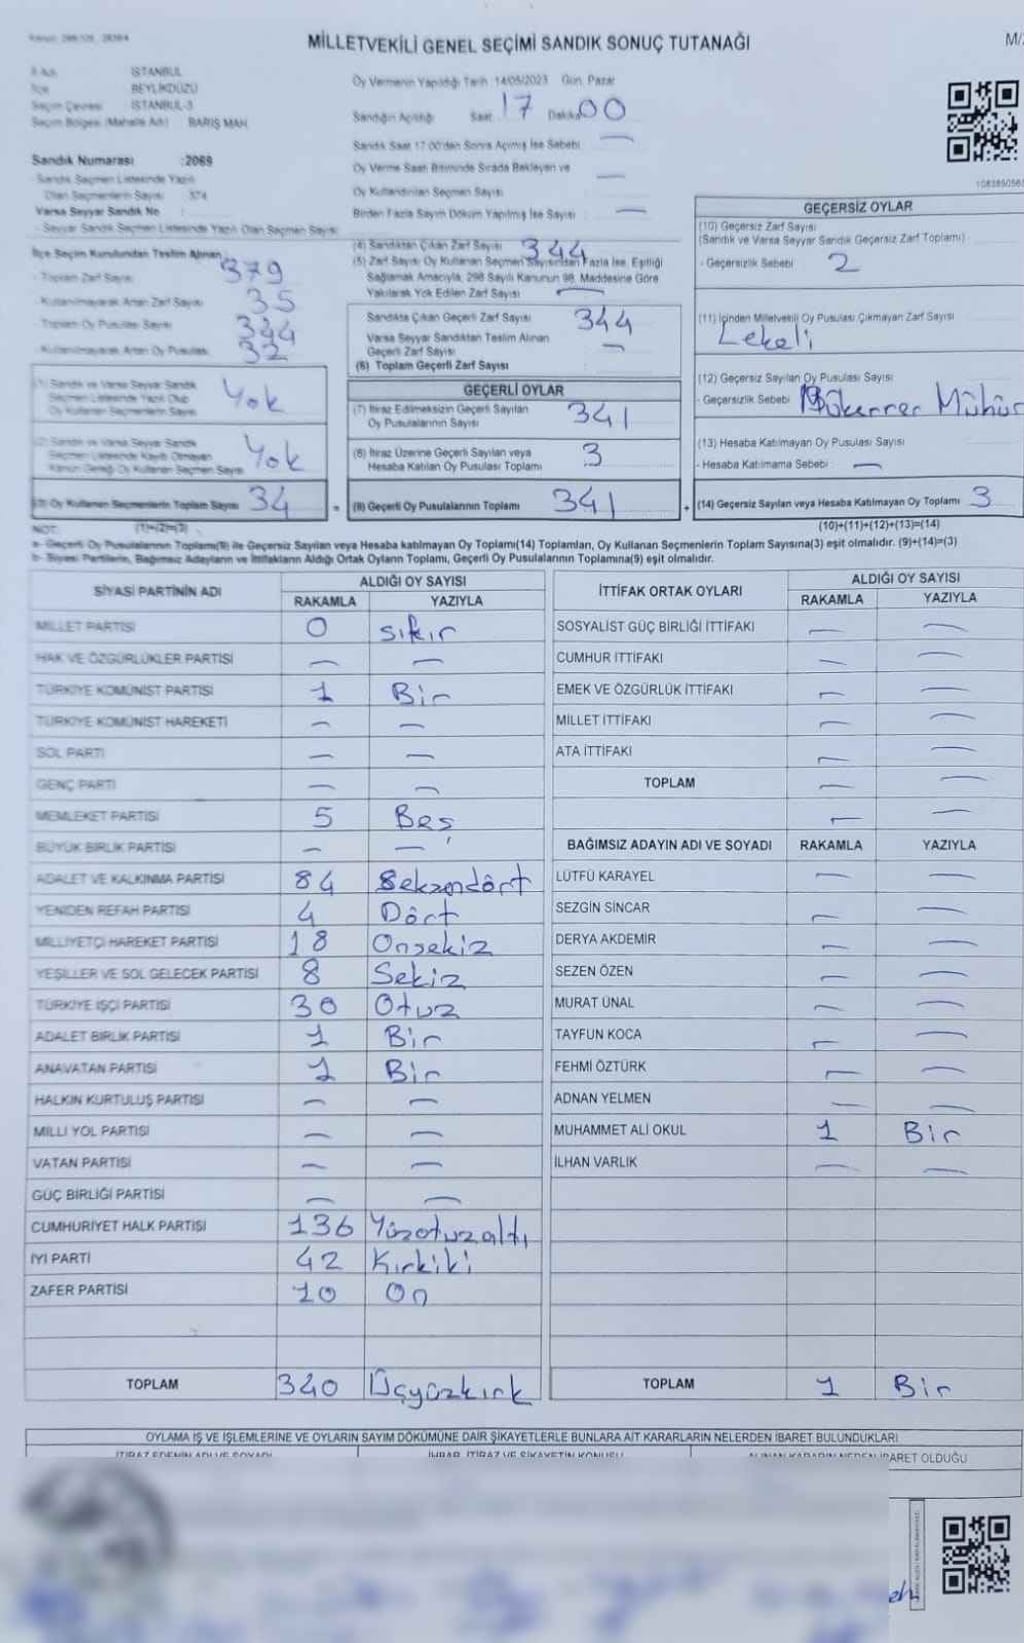 MİLLETVEKİLİ GENEL SEÇİMİ SANDIK SONUÇ TUTANAĞI
İSTANBUL
BEYLİKDÜZÜ
Seçim Çevresi İSTANBUL-3
Seçim Bölgesi (Mahalle Adı) BARIŞ MAH.
Sandık Numarası :2069
Sandık Seçmen Listesinde Yazılı
Olan Seçmenlerin Sayısı 374
Varsa Seyyar Sandık No
- Seyyar Sandık Seçmen Listesinde Yazılı Olan Seçmen Sayısı
Oy Vermenin Yapıldığı Tarih :14/05/2023 Gün: Pazar
Sandığın Açıldığı Saat 17 Dakika 00
Sandık Saat 17:00'den Sonra Açılmış İse Sebebi —
Oy Verme Saati Bitiminde Sırada Bekleyen ve
Oy Kullandırılan Seçmen Sayısı —
Birden Fazla Sayım Döküm Yapılmış İse Sayısı —
İlçe Seçim Kurulundan Teslim Alınan
Toplam Zarf Sayısı 379
Kullanılmayarak Artan Zarf Sayısı 35
Toplam Oy Pusulası Sayısı 344
Kullanılmayarak Artan Oy Pusulası 32
(1) Sandık ve Varsa Seyyar Sandık
Seçmen Listesinde Yazılı Olup
Oy Kullanan Seçmenlerin Sayısı Yok
(2) Sandık ve Varsa Seyyar Sandık
Seçmen Listesinde Kayıtlı Olmayan
Kanun Gereği Oy Kullanan Seçmen Sayısı Yok
(3) Oy Kullanan Seçmenlerin Toplam Sayısı 34
(4) Sandıktan Çıkan Zarf Sayısı 344
(5) Zarf Sayısı Oy Kullanan Seçmen Sayısından Fazla İse, Eşitliği
Sağlamak Amacıyla, 298 Sayılı Kanunun 98. Maddesine Göre
Yakılarak Yok Edilen Zarf Sayısı —
Sandıkta Çıkan Geçerli Zarf Sayısı 344
Varsa Seyyar Sandıktan Teslim Alınan
Geçerli Zarf Sayısı —
(6) Toplam Geçerli Zarf Sayısı
GEÇERLİ OYLAR
(7) İtiraz Edilmeksizin Geçerli Sayılan
Oy Pusulalarının Sayısı 341
(8) İtiraz Üzerine Geçerli Sayılan veya
Hesaba Katılan Oy Pusulası Toplamı 3
= (9) Geçerli Oy Pusulalarının Toplamı 341 +
GEÇERSİZ OYLAR
(10) Geçersiz Zarf Sayısı
(Sandık ve Varsa Seyyar Sandık Geçersiz Zarf Toplamı)
- Geçersizlik Sebebi 2
(11) İçinden Milletvekili Oy Pusulası Çıkmayan Zarf Sayısı
Lekeli
(12) Geçersiz Sayılan Oy Pusulası Sayısı
- Geçersizlik Sebebi Mükerrer Mühür
(13) Hesaba Katılmayan Oy Pusulası Sayısı
- Hesaba Katılmama Sebebi —
(14) Geçersiz Sayılan veya Hesaba Katılmayan Oy Toplamı 3
NOT: (1)+(2)=(3) (10)+(11)+(12)+(13)=(14)
a- Geçerli Oy Pusulalarının Toplamı(9) ile Geçersiz Sayılan veya Hesaba katılmayan Oy Toplamı(14) Toplamları, Oy Kullanan Seçmenlerin Toplam Sayısına(3) eşit olmalıdır. (9)+(14)=(3)
b- Siyasi Partilerin, Bağımsız Adayların ve İttifakların Aldığı Ortak Oyların Toplamı, Geçerli Oy Pusulalarının Toplamına(9) eşit olmalıdır.
SİYASİ PARTİNİN ADI ALDIĞI OY SAYISI
RAKAMLA YAZIYLA
MİLLET PARTİSİ 0 sıfır
HAK VE ÖZGÜRLÜKLER PARTİSİ — —
TÜRKİYE KOMÜNİST PARTİSİ 1 Bir
TÜRKİYE KOMÜNİST HAREKETİ — —
SOL PARTİ — —
GENÇ PARTİ — —
MEMLEKET PARTİSİ 5 Beş
BÜYÜK BİRLİK PARTİSİ — —
ADALET VE KALKINMA PARTİSİ 84 Seksendört
YENİDEN REFAH PARTİSİ 4 Dört
MİLLİYETÇİ HAREKET PARTİSİ 18 Onsekiz
YEŞİLLER VE SOL GELECEK PARTİSİ 8 Sekiz
TÜRKİYE İŞÇİ PARTİSİ 30 Otuz
ADALET BİRLİK PARTİSİ 1 Bir
ANAVATAN PARTİSİ 1 Bir
HALKIN KURTULUŞ PARTİSİ — —
MİLLİ YOL PARTİSİ — —
VATAN PARTİSİ — —
GÜÇ BİRLİĞİ PARTİSİ — —
CUMHURİYET HALK PARTİSİ 136 Yüzotuzaltı
İYİ PARTİ 42 Kırkiki
ZAFER PARTİSİ 10 On
TOPLAM 340 Üçyüzkırk
İTTİFAK ORTAK OYLARI ALDIĞI OY SAYISI
RAKAMLA YAZIYLA
SOSYALİST GÜÇ BİRLİĞİ İTTİFAKI — —
CUMHUR İTTİFAKI — —
EMEK VE ÖZGÜRLÜK İTTİFAKI — —
MİLLET İTTİFAKI — —
ATA İTTİFAKI — —
TOPLAM — —
— —
BAĞIMSIZ ADAYIN ADI VE SOYADI RAKAMLA YAZIYLA
LÜTFÜ KARAYEL — —
SEZGİN SİNCAR — —
DERYA AKDEMİR — —
SEZEN ÖZEN — —
MURAT ÜNAL — —
TAYFUN KOCA — —
FEHMİ ÖZTÜRK — —
ADNAN YELMEN — —
MUHAMMET ALİ OKUL 1 Bir
İLHAN VARLIK — —
TOPLAM 1 Bir
OYLAMA İŞ VE İŞLEMLERİNE VE OYLARIN SAYIM DÖKÜMÜNE DAİR ŞİKAYETLERLE BUNLARA AİT KARARLARIN NELERDEN İBARET BULUNDUKLARI
İTİRAZ EDENİN ADI VE SOYADI İHBAR, İTİRAZ VE ŞİKAYETİN KONUSU ALINAN KARARIN NEDEN İBARET OLDUĞU